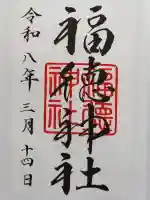 福徳神社
令和八年三月十四日
福徳
神社